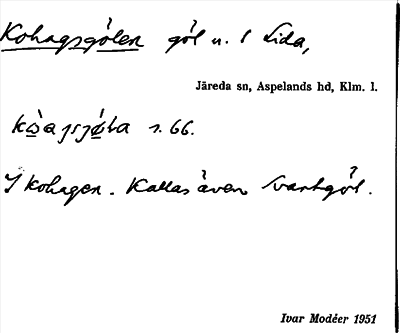 Kohagsgölen göl n. 1 Lida,
Järeda sn, Aspelands hd, Klm. l.
s. 66.
I kohagen. Kallas även Svartgöl.
Ivar Modéer 1951